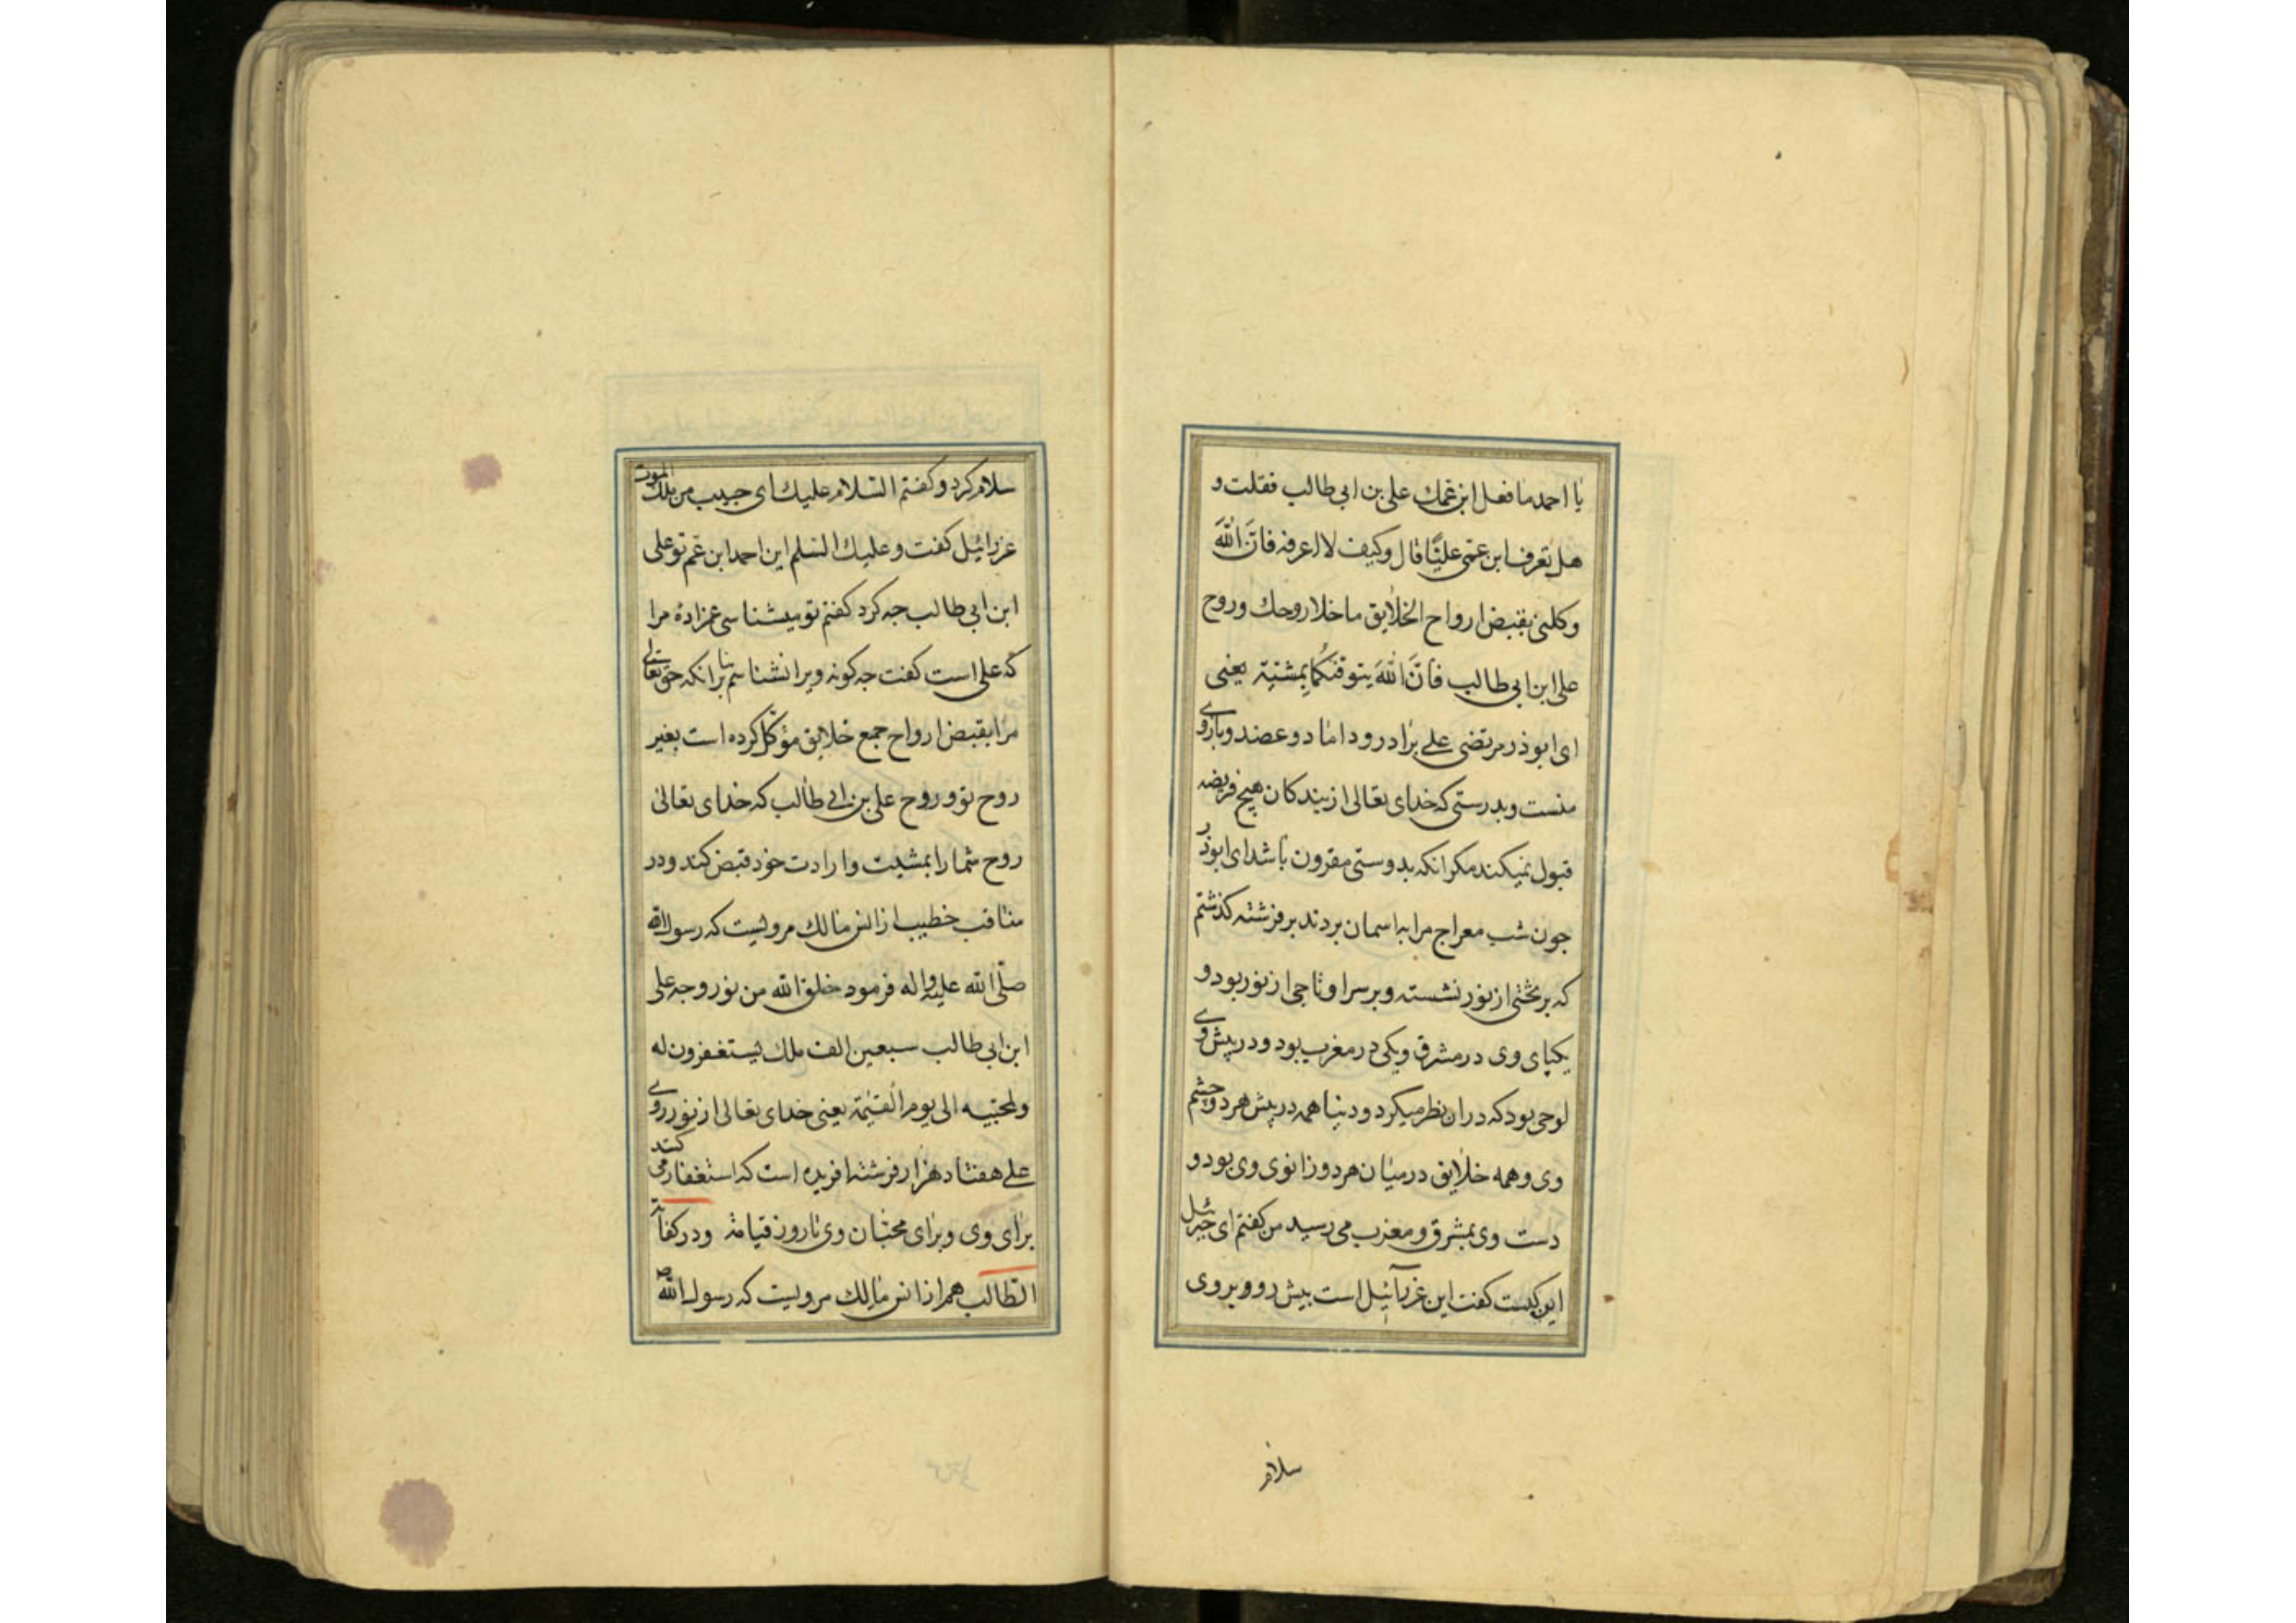 یا احمد ما فعل ابن عمك علی بن ابی طالب فقلت و
هل تعرف ابن عمی علیًّا قال و کیف لا اعرفه فانَّ اللّٰهَ
وکلنی بقبض ارواح الخلایق ما خلا روحك و روح
علی ابن ابی طالب فانَّ اللّٰهَ یتوفیکما بمشیّته یعنی
ای ابوذر مرتضی علی برادر و داماد و عضد و بازوی
منست و بدرستی که خدای تعالی از بندکان هیچ فریضه
قبول نمیکند مکر انکه بدوستی مقرون باشد ای ابوذر
جون شب معراج مرا به اسمان بردند بر فرشته کذشتم
که بر تختی از نور نشسته و بر سر او تاجی از نور بود و
یکپای وی در مشرق و یکی در مغرب بود و در پیش وی
لوحی بود که در ان نظر میکرد و دنیا همه در پیش هر دو چشم
وی و همه خلایق در میان هر دو زانوی وی بود و
دست وی بمشرق و مغرب می رسید من کفتم ای جبرئیل
این کیست کفت این عزرائیل است پیش رو و بر وی
سلام
سلام کرد و کفتم السّلام علیك ای حبیب من ملك الموت
عزرائیل کفت و علیك السّلم این احمد ابن عم تو علی
ابن ابی طالب جه کرد کفتم تو میشناسی عمزادهٔ مرا
که علی است کفت جه کونه ویرا نشناسم بنابرانکه حق تعالی
مرا بقبض ارواح جمع خلایق مؤکّل کرده است بغیر
روح تو و روح علی بن ابی طالب که خدای تعالی
روح شما را بمشیت و ارادت خود قبض کند و در
مناقب خطیب از انس مالك مرویست که رسول اللّٰه
صلّی اللّٰه علیه و اله فرمود خلق اللّٰه من نور وجه علی
ابن ابی طالب سبعین الف ملك یستغفرون له
و لمحبّیه الی یوم القیٰمة یعنی خدای تعالی از نور روی
علی هفتاد هزار فرشته افریده است که استغفار می کنند
برای وی و برای محبّان وی تا روز قیامة و در کفایة
الطّالب هم از انس مالك مرویست که رسول اللّٰه ص